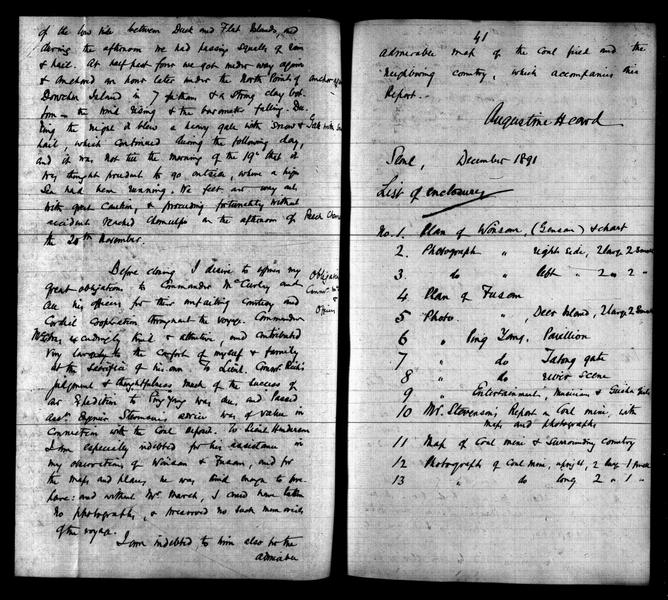 of the low hills between Duck and Flat Islands, and
during the afternoon we had passing squalls of rain
& hail. At half past four we got under way again
& anchored an hour later under the North Point of
Island in 7 fathoms & a strong clay bot-
tom - the wind rising & the barometer falling. Du-
ring the night it blew a heavy gale with snow &
hail, which continued during the following day,
and it was not till the morning of the 19th that it
was thought prudent to go outside, where a high
Sea had been running. We felt our way out
with great caution, & proceeding fortunately without
accident reached Chemulpo on the afternoon of
the 20th November.
Before closing I desire to express my
great obligations to Commander McCurley and
all his officers for their unfailing courtesy and
Cordial Cooperation throughout the voyage. Commander
exceedingly kind & attentive, and contributed
very largely to the comfort of myself & family
at the sacrifice of his own. To Lieut.
judgment & thoughtfulness much of the success of
our Expedition to Ping Yang was due, and Passed
Asst. Engineer Stevenson's advice was of value in
Connection with the Coal deposit. To Lieut Henderson
I am especially indebted for his assistance in
my observations of Wonsan & Fusan, and for
the maps and plans, he was kind enough to pre-
pare: and without Mr. March, I could have taken
no photographs, & preserved no such memorials
of the voyage.
I am indebted to him also for the
admirable
41
admirable map of the Coal field and the
neighboring country, which accompanies this
Report.
Augustine Heard
Seoul, December 1891
List of enclosures
No. 1. Plan of Wonsan, (Gensan) & chart
2. Photograph " right side, 2 large 2 small
3. do " left " 2 " 2 "
4 Plan of Fusan
5 Photo. " , Deer Island, 2 large, 2 small
6 " Ping Yang. Pavillion
7 " do Tatong gate
8 " do river scene
9 " Entertainment, Musician & Geisha Girls
10 Mr. Stevenson's Report on Coal mine, with
maps and photographs
11 Map of Coal mine & Surrounding country
12 Photograph of Coal Mine, upright, 2 large 1 small
13 " do long 2 " 1 "